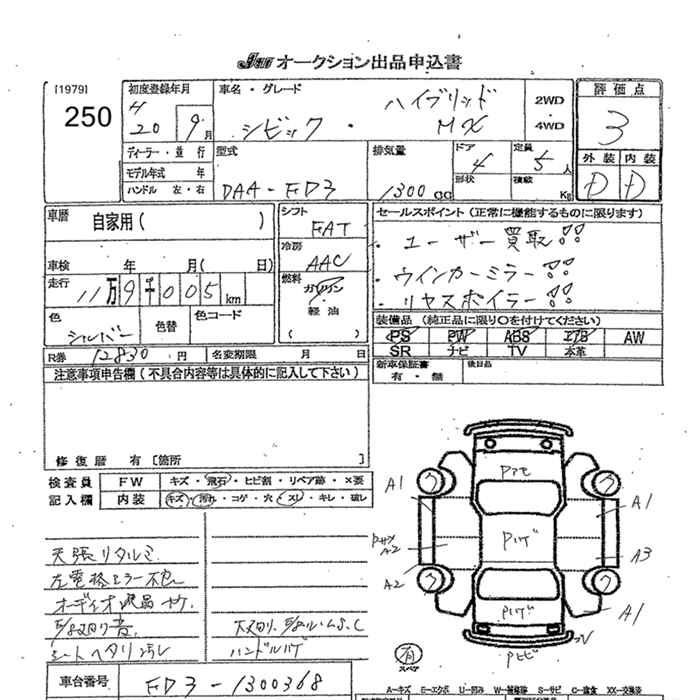 JU オークション出品申込書
[1979]
250
初度登録年月
H
20 9月
車名・グレード
ハイブリッド
シビック・MX
2WD
・
4WD
評価点
3
外装 内装
D D
ディーラー・並行
モデル年式 年
ハンドル 左・右
型式
DAA-FD3
排気量
1300 CC
ドア
4
形状
定員
5人
積載
Kg
車歴 自家用( )
シフト
FAT
冷房
AAC
燃料
ガソリン
・
軽油
( )
車検 年 月( 日)
走行 11万9千005km
色
シルバー
色替
色コード
R券 12830円
名変期限 月 日
セールスポイント(正常に機能するものに限ります)
・ユーザー買取!!
・ウインカーミラー!!
・リヤスポイラー!!
装備品(純正品に限り○を付けてください)
PS PW ABS エアB AW
SR ナビ TV 本革
新車保証書
有・無
後日品
注意事項申告欄(不具合内容等は具体的に記入して下さい)
修復歴 有[箇所 ]
検査員
記入欄
FW キズ・飛石・ヒビ割・リペア跡・×要
内装 キズ・汚れ・コゲ・穴・スレ・キレ・破レ
天張リタルミ
オーディオ液晶
シートヘタリ汚レ
ハンドルハゲ
車台番号 FD3-1300368
A1
A2
A2
A1
A3
A1
Pハゲ
Pハゲ
Pヒビ
V
有
スペア
A-キズ E-エクボ U-凹み W-補修跡 S-サビ C-腐食 XX-交換済